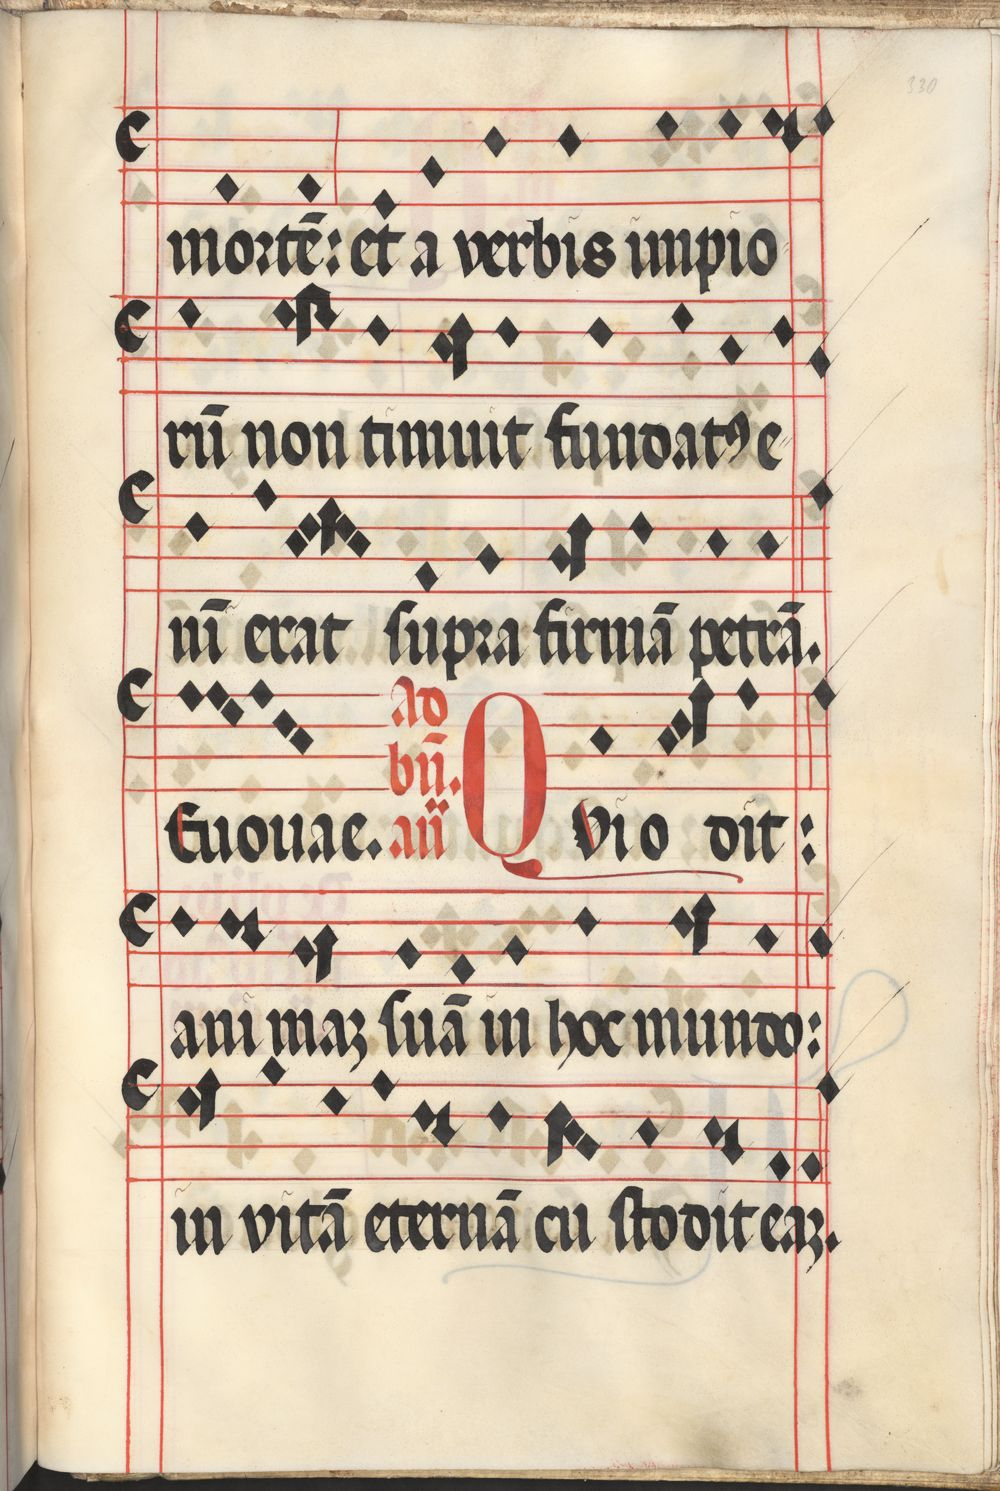 330
mortē: et a verbis impio
rū non timuit fundatꝰ e
nī erat supra firmā petrā.
Euouae. Ad bn̄. an̄ Qvi odit:
animaꝫ suā in hoc mundo:
in vitā eternā custodit eaꝫ.